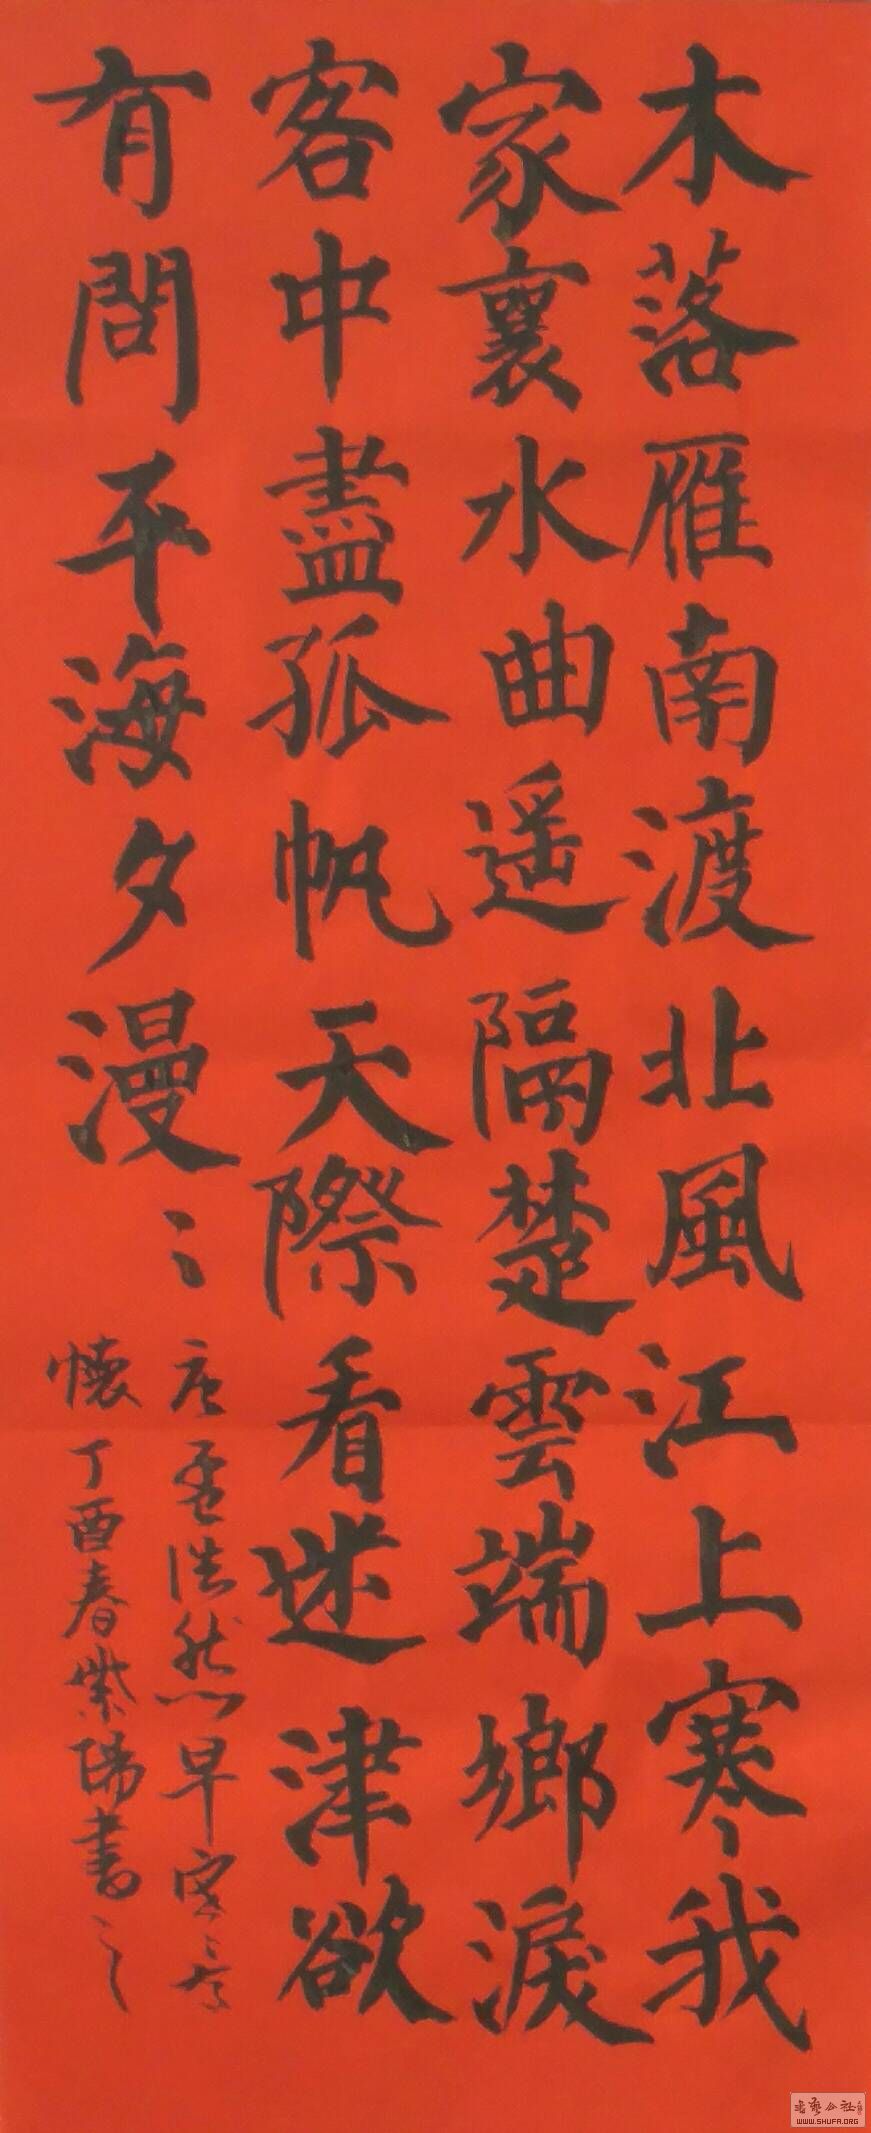 木落雁南渡北風江上寒我
家襄水曲遥隔楚雲端鄉淚
客中盡孤帆天際看迷津欲
有問平海夕漫〻
唐孟浩然早寒有
懷丁酉春紫陽書之
書藝公社
WWW.SHUFA.ORG